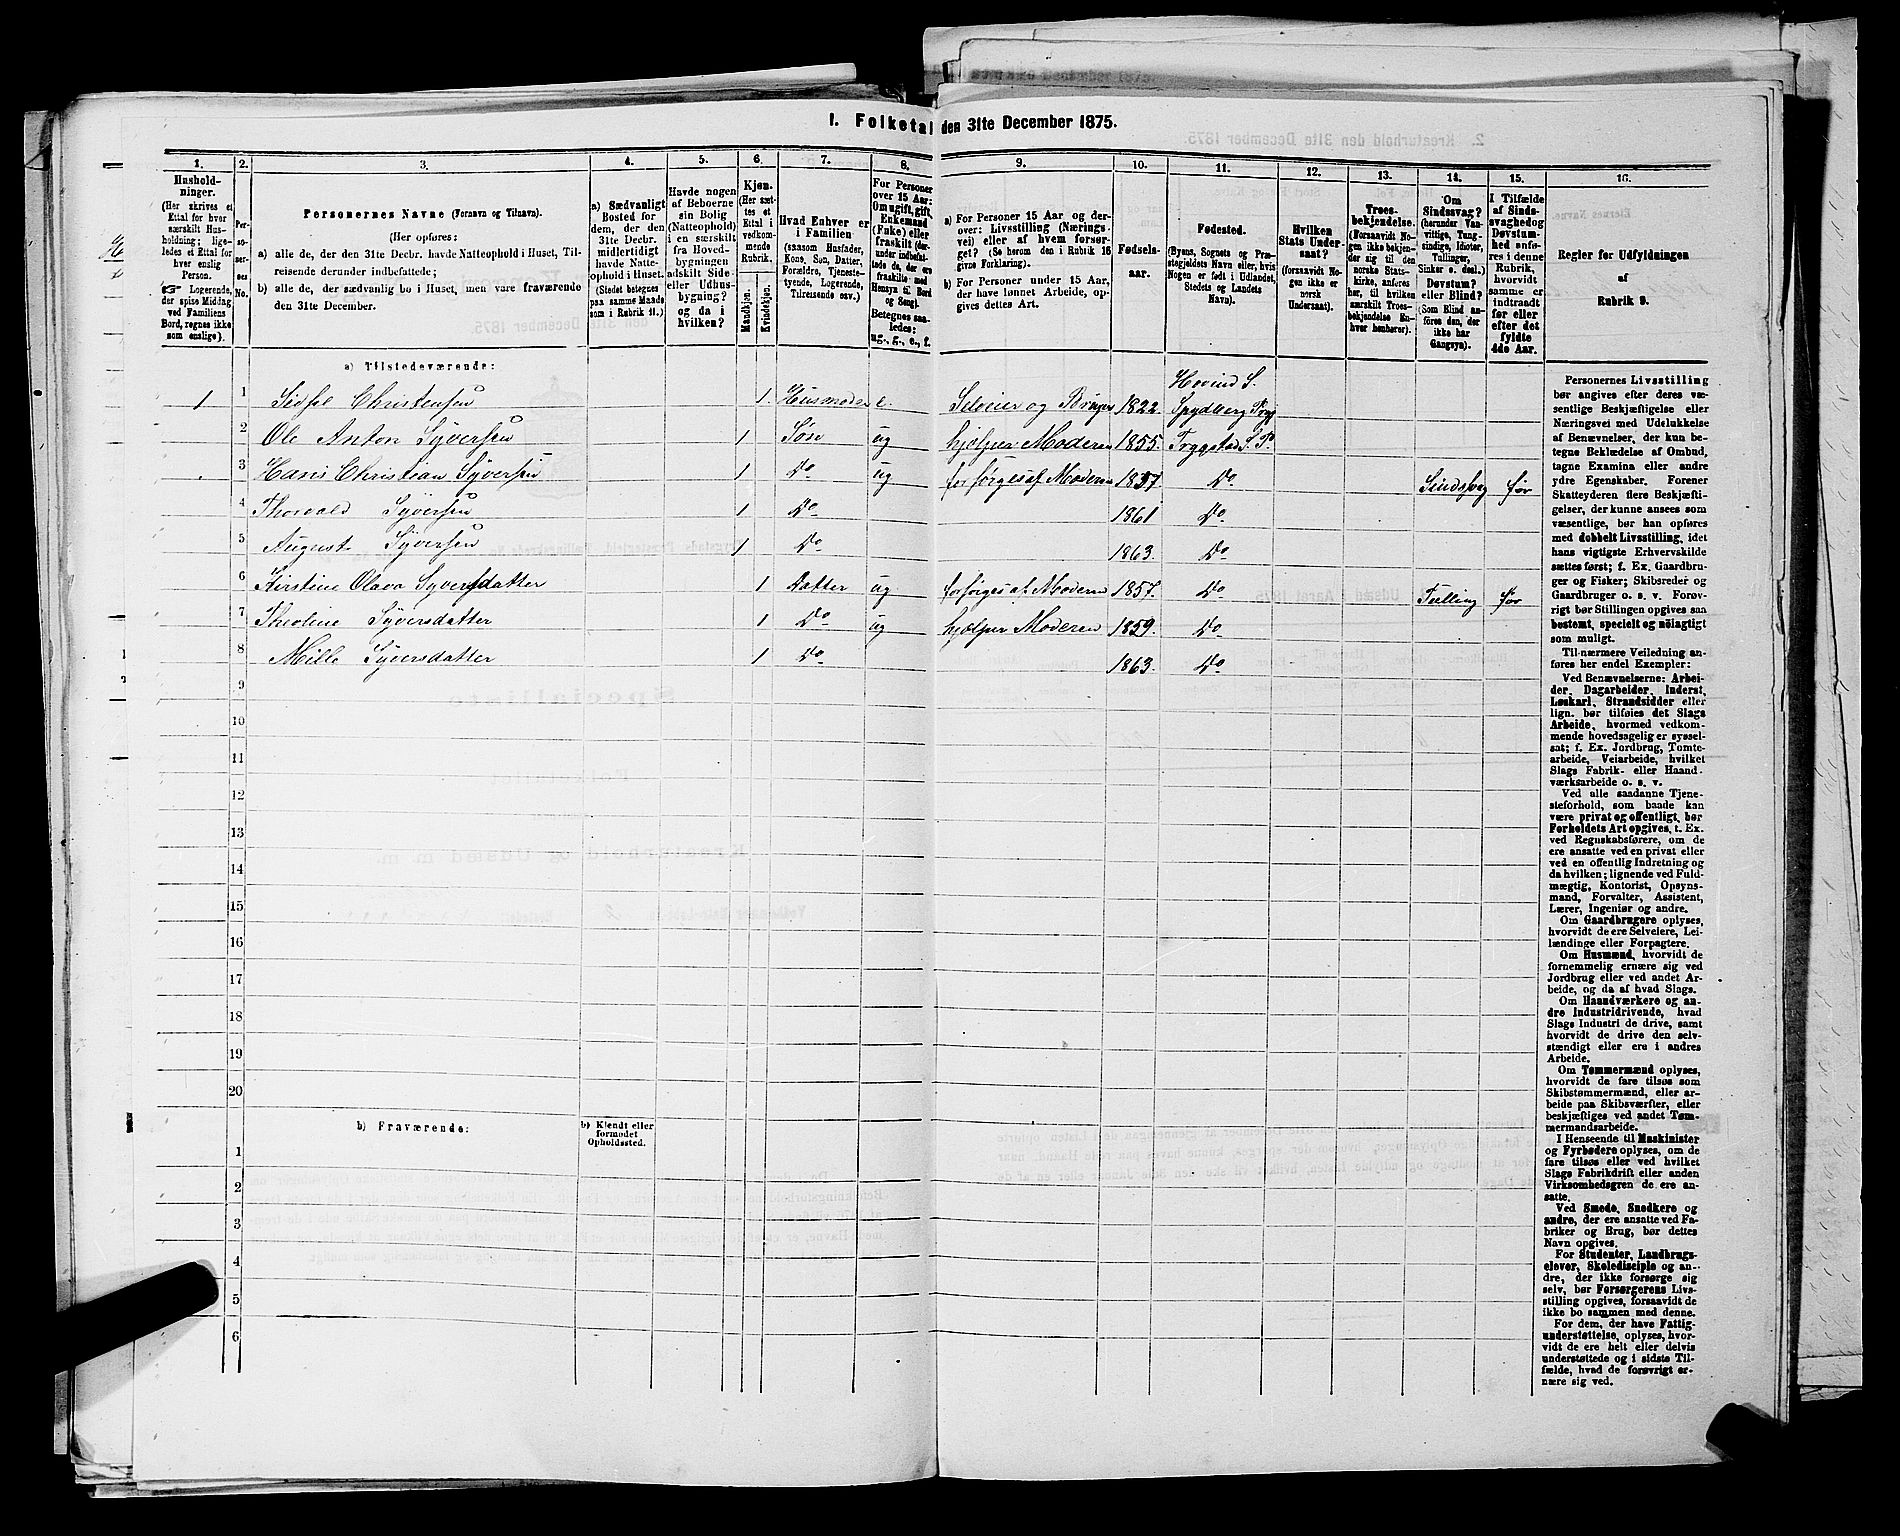 1. Folketal den 31te December 1875.
1. 2. 3. 4. 5. 6. 7. 8. 9. 10. 11. 12. 13. 14. 15. 16.
Hushold-
ninger.
(Her skrives et
Ettal for hver
særskilt Hus-
holdning; lige-
ledes et Ettal for
hver enslig
Person.
Logerende,
der spise Middag
ved Familiens
Bord, regnes ikke
som enslige).
Per-
so-
ner-
nes
No.
Personernes Navne (Fornavn og Tilnavn).
(Her opføres:
a) alle de, der den 31te Decbr. havde Natteophold i Huset, Til-
reisende derunder indbefattede;
b) alle de, der sædvanlig bo i Huset, men vare fraværende
den 31te December.
a) Sædvanligt
Bosted for
dem, der den
31te Decbr.
midlertidigt
havde Natte-
ophold i Huset.
(Stedet betegnes
paa samme Maade
som i Rubrik 11.)
Havde nogen
af Beboerne
sin Bolig
(Natteophold)
i en særskilt
fra Hoved-
bygningen
adskilt Side-
eller Udhus-
bygning?
og da i
hvilken?
Kjøn.
(Her sæt-
tes et
Ettal i
vedkom-
mende
Rubrik.
Mandkjøn.
Kvindekjøn.
Hvad Enhver er
i Familien
(saasom Husfader,
Kone, Søn, Datter,
Forældre, Tjeneste-
tyende, Logerende,
Tilreisende osv.)
For Personer
over 15 Aar:
Om ugift, gift,
Enkemand
(Enke) eller
fraskilt (der-
under indbefat-
tede de, der ere
fraskilte med
Hensyn til Bord
og Seng).
Betegnes saa-
ledes:
ug., g., e., f.
a) For Personer 15 Aar og der-
over: Livsstilling (Nærings-
vei) eller af hvem forsør-
get? (Se herom den i Rubrik 16
givne Forklaring).
b) For Personer under 15 Aar,
der have lønnet Arbeide, op-
gives dettes Art.
Fødsels-
aar.
Fødested.
(Byens, Sognets og Præ-
stegjeldets Navn eller, hvis
Nogen er født i Udlandet,
Stedets og Landets
Navn).
Hvilken
Stats Under-
saat?
(forsaavidt No-
gen ikke er
norsk
Undersaat).
Troes-
bekjendelse.
(Forsaavidt No-
gen ikke bekjen-
der sig til den
norske Stats-
kirke, anføres
her, til hvilken
særskilt Troes-
bekjendelse En-
hver henhører).
Om
Sindssvag?
(herunder Vaa-
vittige, Tung-
sindige, Idioter,
Tullinger,
Sinker o. desl.)
Døvstum?
eller Blind?
(Som Blind an-
føres den, der
ikke har
Gangsyn).
I Tilfælde
af Sinds-
svaghed og
Døvstum-
hed anfø-
res i denne
Rubrik,
hvorvidt
samme er
indtraadt
før eller
efter det
fyldte
4de Aar.
Regler for Udfyldningen
af
Rubrik 9.
a) Tilstedeværende:
Hovind S.
1 1 Sidsel Christensen 1. Husmoder e. Selveier og Bruger 1822. Spydberg Prgj
2 Ole Anton Syversen 1 Søn ug hjælper Moderen 1855. Trygstad S. P.
3 Hans Christian Syversen 1 Do ug forsørges af Moderen 1857 Do Sindssvag før
4 Thorvald Syversen 1 Do 1861 Do
5 August Syversen 1 Do 1863. Do
6 Kirstine Olava Syversdatter 1 Datter ug forsørges af Moderen 1857. Do Tulling før
7 Theoline Syversdatter 1 Do ug hjælper Moderen 1859. Do
8 Mille Syversdatter 1 Do 1863. Do
9
10
11
12
13
14
15
16
17
18
19
20
b) Fraværende:
b) Kjendt eller
formodet
Opholdssted.
1
2
3
4
5
6
Personernes Livsstilling
bør angives efter deres væ-
sentlige Beskjæftigelse eller
Næringsvei med Udelukkelse
af Benævnelser, der kun be-
tegne Beklædelse af Ombud,
tagne Examina eller andre
ydre Egenskaber. Forener
Skatteyderen flere Beskjæfti-
gelser, der kunne ansees som
væsentlige, bør han opføres
med dobbelt Livsstilling, idet
hans vigtigste Erhvervskilde
sættes først; f. Ex. Gaardbru-
ger og Fisker; Skibsreder og
Gaardbruger o. s. v. Forøv-
rigt bør Stillingen opgives saa
bestemt, specielt og nøiagtigt
som muligt.
Til nærmere Veiledning an-
føres her endel Exempler:
Ved Benævnelserne: Arbei-
der, Dagarbeider, Inderst,
Løskarl, Strandsidder eller
lign. bør tilføies det Slags
Arbeide, hvormed vedkom-
mende hovedsagelig er syssel-
sat; f. Ex. Jordbrug, Tomte-
arbeide, Veiarbeide, hvilket
Slags Fabrik- eller Haand-
værksarbeide o. s. v.
Ved alle saadanne Tjene-
steforhold, som baade kan
være privat og offentligt, bør
Forholdets Art opgives, t. Ex.
ved Regnskabsførere, om de
ere ansatte ved en privat eller
ved en offentlig Indretning og
da hvilken; lignende ved Fuld-
mægtig, Kontorist, Opsyns-
mand, Forvalter, Assistent,
Lærer, Ingeniør og andre.
Om Gaardbrugere oplyses,
hvorvidt de ere Selveiere, Lei-
lændinge eller Forpagtere.
Om Husmænd, hvorvidt de
fornemmelig ernære sig ved
Jordbrug eller ved andet Ar-
beide, og da af hvad Slags.
Om Haandværkere og an-
dre Industridrivende, hvad
Slags Industri de drive, samt
hvorvidt de drive den selv-
stændigt eller ere i andres
Arbeide.
Om Tømmermænd oplyses,
hvorvidt de fare tilsøs som
Skibstømmermænd, eller ar-
beide paa Skibsværfter, eller
beskjæftiges ved andet Tøm-
mermandsarbeide.
I Henseende til Maskinister
og Fyrbødere oplyses, om de
fare tilsøs eller ved hvilket
Slags Fabrikdrift eller anden
Virksomhedsgren de ere an-
satte.
Ved Smede, Snedkere og
andre, der ere ansatte ved Fa-
briker og Brug, bør dettes
Navn opgives.
For Studenter, Landbrugs-
elever, Skoledisciple og an-
dre, der ikke forsørge sig
selv, bør Forsørgerens Livs-
stilling opgives, forsaavidt de
ikke bo sammen med denne.
For dem, der have Fattig-
understøttelse, oplyses, hvor-
vidt de ere helt eller delvis
understøttede og i sidste Til-
fælde, hvad de forøvrigt er-
nære sig ved.